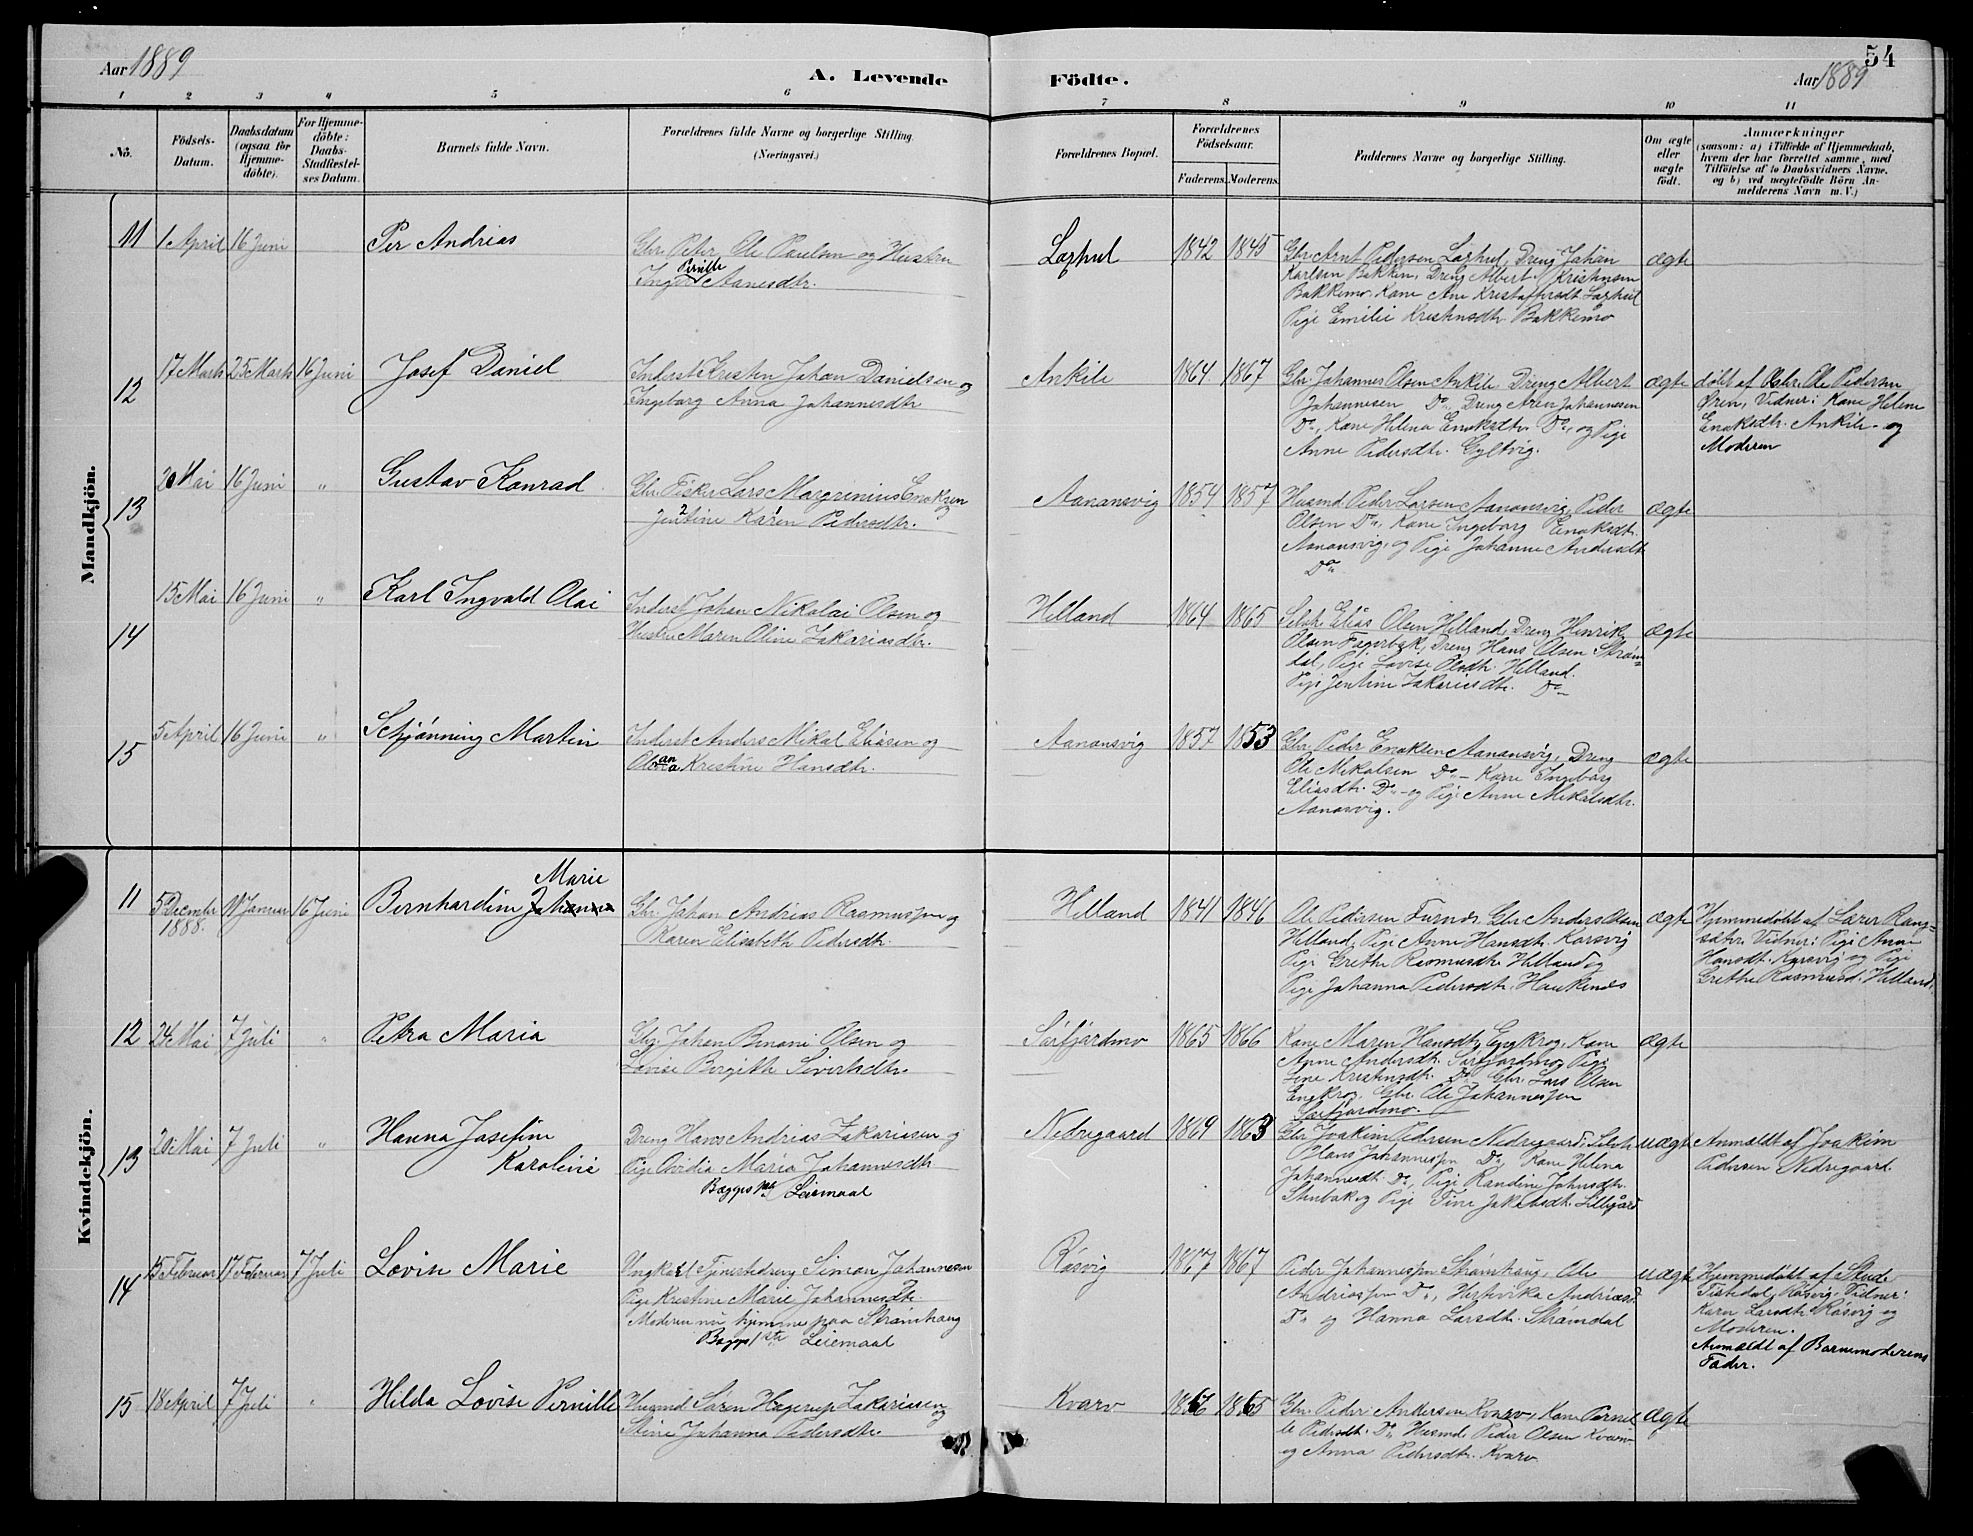 54
Aar 1889
A. Levende
Födte.
Aar 1889
1 2 3 4 5 6 7 8 9 10 11
No.
Födsels-
Datum.
Daabsdatum
(ogsaa for
Hjemme-
döbte).
For Hjemme-
döbte:
Daabs-
Stadfæstel-
ses Datum.
Barnets fulde Navn.
Forældrenes fulde Navne og borgerlige Stilling.
(Næringsvei.)
Forældrenes Bopæl.
Forældrenes
Födselsaar.
Faderens.
Moderens.
Faddernes Navne og borgerlige Stilling.
Om ægte
eller
uægte
født.
Anmærkninger
(saasom: a) i Tilfælde af Hjemmedaab,
hvem der har forrettet samme, med
Tilföielse af to Daabsvidners Navne.
og b) ved uægtefödte Börn An-
melderens Navn m. V.)
Mandkjön.
11 1 April 16 Juni Per Andrias
Gbr. Peter Ole Paulsen og Hustru
Pernille
Inger Aanesdtr.
Laxhul 1842 1845
Gbr. Arnt Pedersen Laxhul, Dreng Johan
Karlsen Bakken, Dreng Albert Kristensen
Bakkemo, Kone Ane Kristoffersdt Laxhul
Pige Emilie Kristensdtr. Bakkemo
ægte
12 17 Marts 25 Marts 16 Juni Josef Daniel
Inderst Kristen Johan Danielsen og
Ingeborg Anna Johannesdtr
Ankile 1864 1867
Gbr. Johannes Olsen Ankile, Dreng Albert
Johannesen Do, Dreng Aren Johannesen
Do, Kone Helena Enoksdtr. Do, og Pige
Anne Pedersdtr. Gyltvig.
ægte
døbt af Gbr. Ole Pedersen
Øren, Vidner: Kone Helene
Enoksdtr. Ankile og
Moderen
13 20 Mai 16 Juni " Gustav Konrad
Gbr. Fisker Lars Margrinius Enoksen og
Jentine Karen Pedersdtr.
Aanansvig 1854 1857
Husmd. Peder Larsen Aanansvig, Peder
Olsen Do, Kone Ingeborg Enoksdt.
Aanansvig, og Pige Johanne Andersdt
Do
ægte
14 15 Mai 16 Juni " Karl Ingvald Olai
Inderst Johan Nikolai Olsen og
Hustru Maren Oline Zakariasdtr.
Helland 1864 1865
Selvh. Elias Olsen Helland, Dreng Henrik
Olsen Fagerbak, Dreng Hans Olsen Strøm-
dal, Pige Lovise Olsdtr. Helland.
Pige Jentine Zakariasdtr. Do
ægte
15 5 April 16 Juni " Schjønning Martin
Inderst Anders Mikal Eliasen og
Kristine Hansdtr.
Aanansvig 1857 1853
Gbr. Peder Enoksen Aanansvig, Dreng
Ole Mikalsen Do - Kone Ingeborg
Eliasdtr. Do - og Pige Anne Mikalsdtr.
Aanansvig.
ægte
Kvindekjön.
Marie
11 5 Decembr 1888. 11 Januar 16 Juni Bernhardine Johanna
Gbr. Johan Andrias Rasmussen og
Karen Elisabeth Pedersdtr.
Helland 1841 1846
Ole Pedersen Furnes, Gbr. Anders Olsen
Helland, Pige Anne Hansdtr. Korsvig
Pige Grethe Rasmusdtr. Helland og
Pige Johanna Pedersdtr. Haukenes
ægte
Hjemmedøbt af Lærer Rang-
sæter. Vidner: Pige Anne
Hansdt. Korsvig og Pige
Grethe Rasmusd. Helland.
12 24 Mai 7 Juli " Petra Maria
Gbr. Johan Benoni Olsen og
Lovise Birgitte Sivertsdtr.
Sørfjordmo 1865 1866
Kone Maren Hansdtr. Engkrog, Kone
Anne Andersdt. Sørfjordmo, Pige
Lene Kristensdt. Do Gbr. Lars Olsen
Engkrog, Gbr. Ole Johannessen
Sørfjordmo.
ægte
13 20 Mai 7 Juli " Hanna Josefine
Karoline
Dreng Hans Andrias Zakariasen og
Pige Ovidia Maria Johannesdtr
Begges 1ste Leiemaal
Nedregaard 1869 1863
Gbr. Joakim Pedersen Nedregaard, Selvh.
Hans Johannessen Do, Kone Helena
Johannesdt. Do, Pige Randine Johnsdtr.
Stenbak og Pige Tine Jakobsdt. Lillegård
uægte
Anmeldt af Joakim
Pedersen Nedregaard.
14 15 Februar 17 Februar 7 Juli Lovin Marie
Ungkarl Tjenestedreng Simon Johannesen
Pige Kristine Marie Johannesdtr.
Moderen nu hjemme paa Strømhaug
Begges 1ste Leiemaal
Røsvig 1867 1867
Peder Johannessen Strømhaug, Ole
Andriassen Do, Hertevika Andriasd.
Do og Hanna Larsdtr. Strømdal
uægte
Hjemmedøbt af Stud.
Tistedal, Røsvig, Vidner:
Karen Larsdtr. Røsvig og
Moderen.
Anmeldt af Barnemoderens
Fader.
15 18 April 7 Juli " Hilda Lovise Pernille
Husmd. Søren Hagerup Zakariasen og
Stine Johanna Pedersdtr.
Kvarv 1866 1865
Gbr. Peder Andersen Kvarv, Kone Pernil-
le Pedersdt. Do Husmd. Peder Olsen Kvarv
og Anna Pedersdtr. Kvarv.
ægte